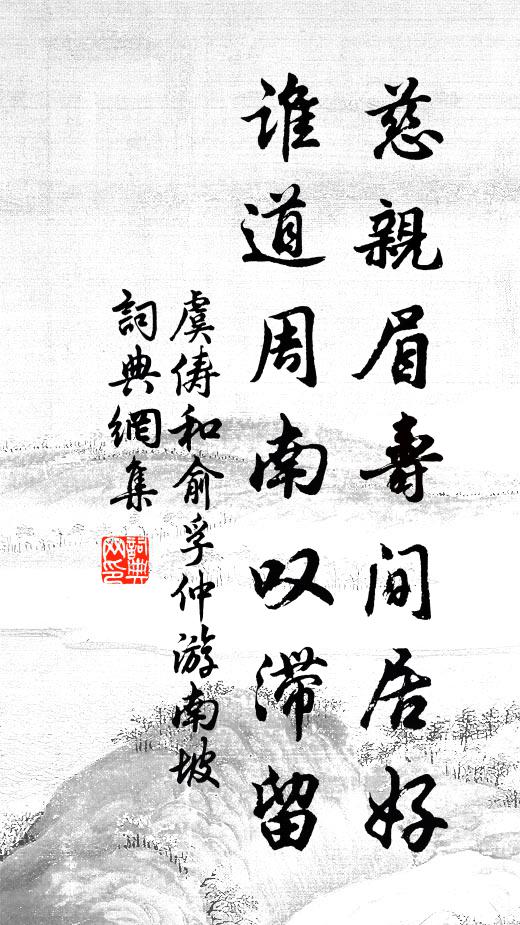 慈親眉壽间居好
谁道周南叹滯留
虞俦和俞孚仲游南坡
詞典網集
詞典网印